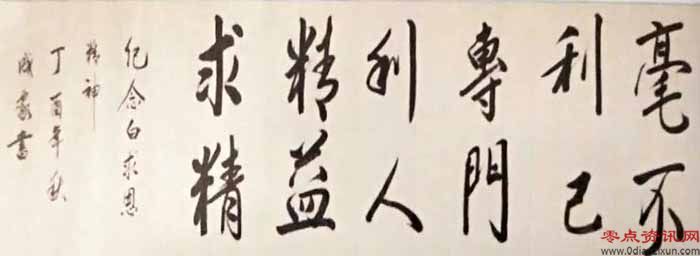 毫不
利己
專門
利人
精益
求精
纪念白求恩
精神
丁酉年秋
書
零点资讯网
www.0dianzixun.com